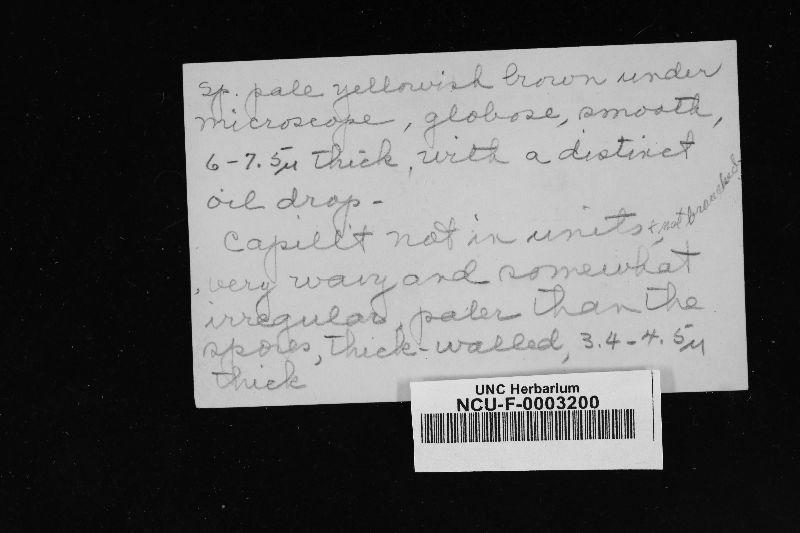 Sp. pale yellowish brown under
microscope, globose, smooth,
6-7.5µ thick, with a distinct
oil drop-
Capill't not in units, & not branched,
very wavy and somewhat
irregular, paler than the
spores, thick-walled, 3.4-4.5µ
thick
UNC Herbarium
NCU-F-0003200